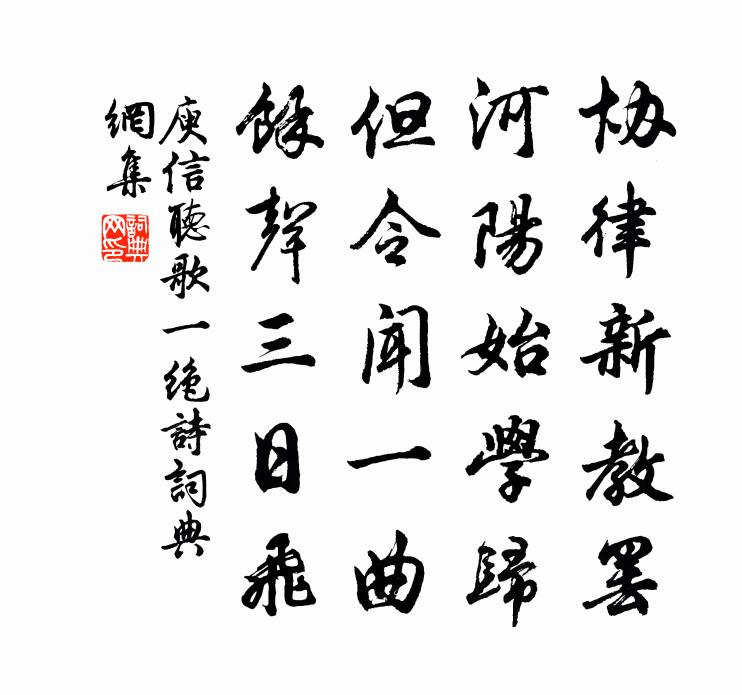 協律新教罷
河陽始學歸
但令聞一曲
餘聲三日飛
庾信聽歌一絶詩詞典
網集
詞典
网印